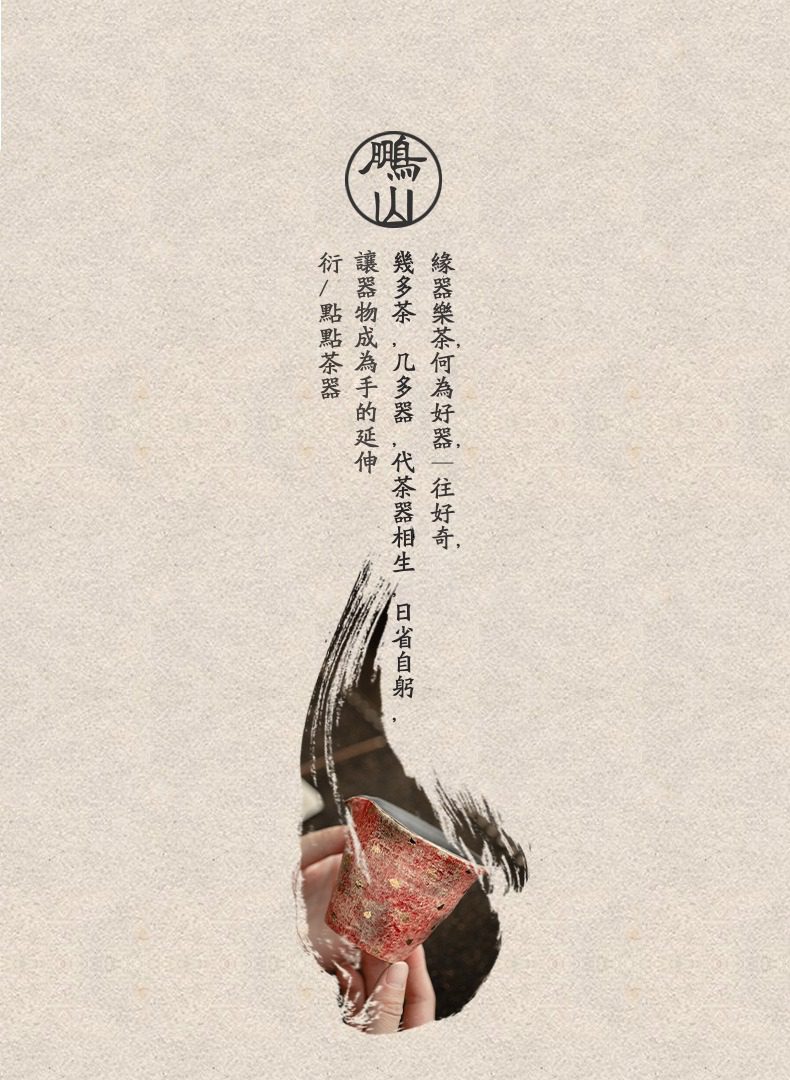 鵬山
緣器樂茶,何為好器,一往好奇,
幾多茶,几多器,代茶器相生,日省自躬,
讓器物成為手的延伸
衍/點點茶器